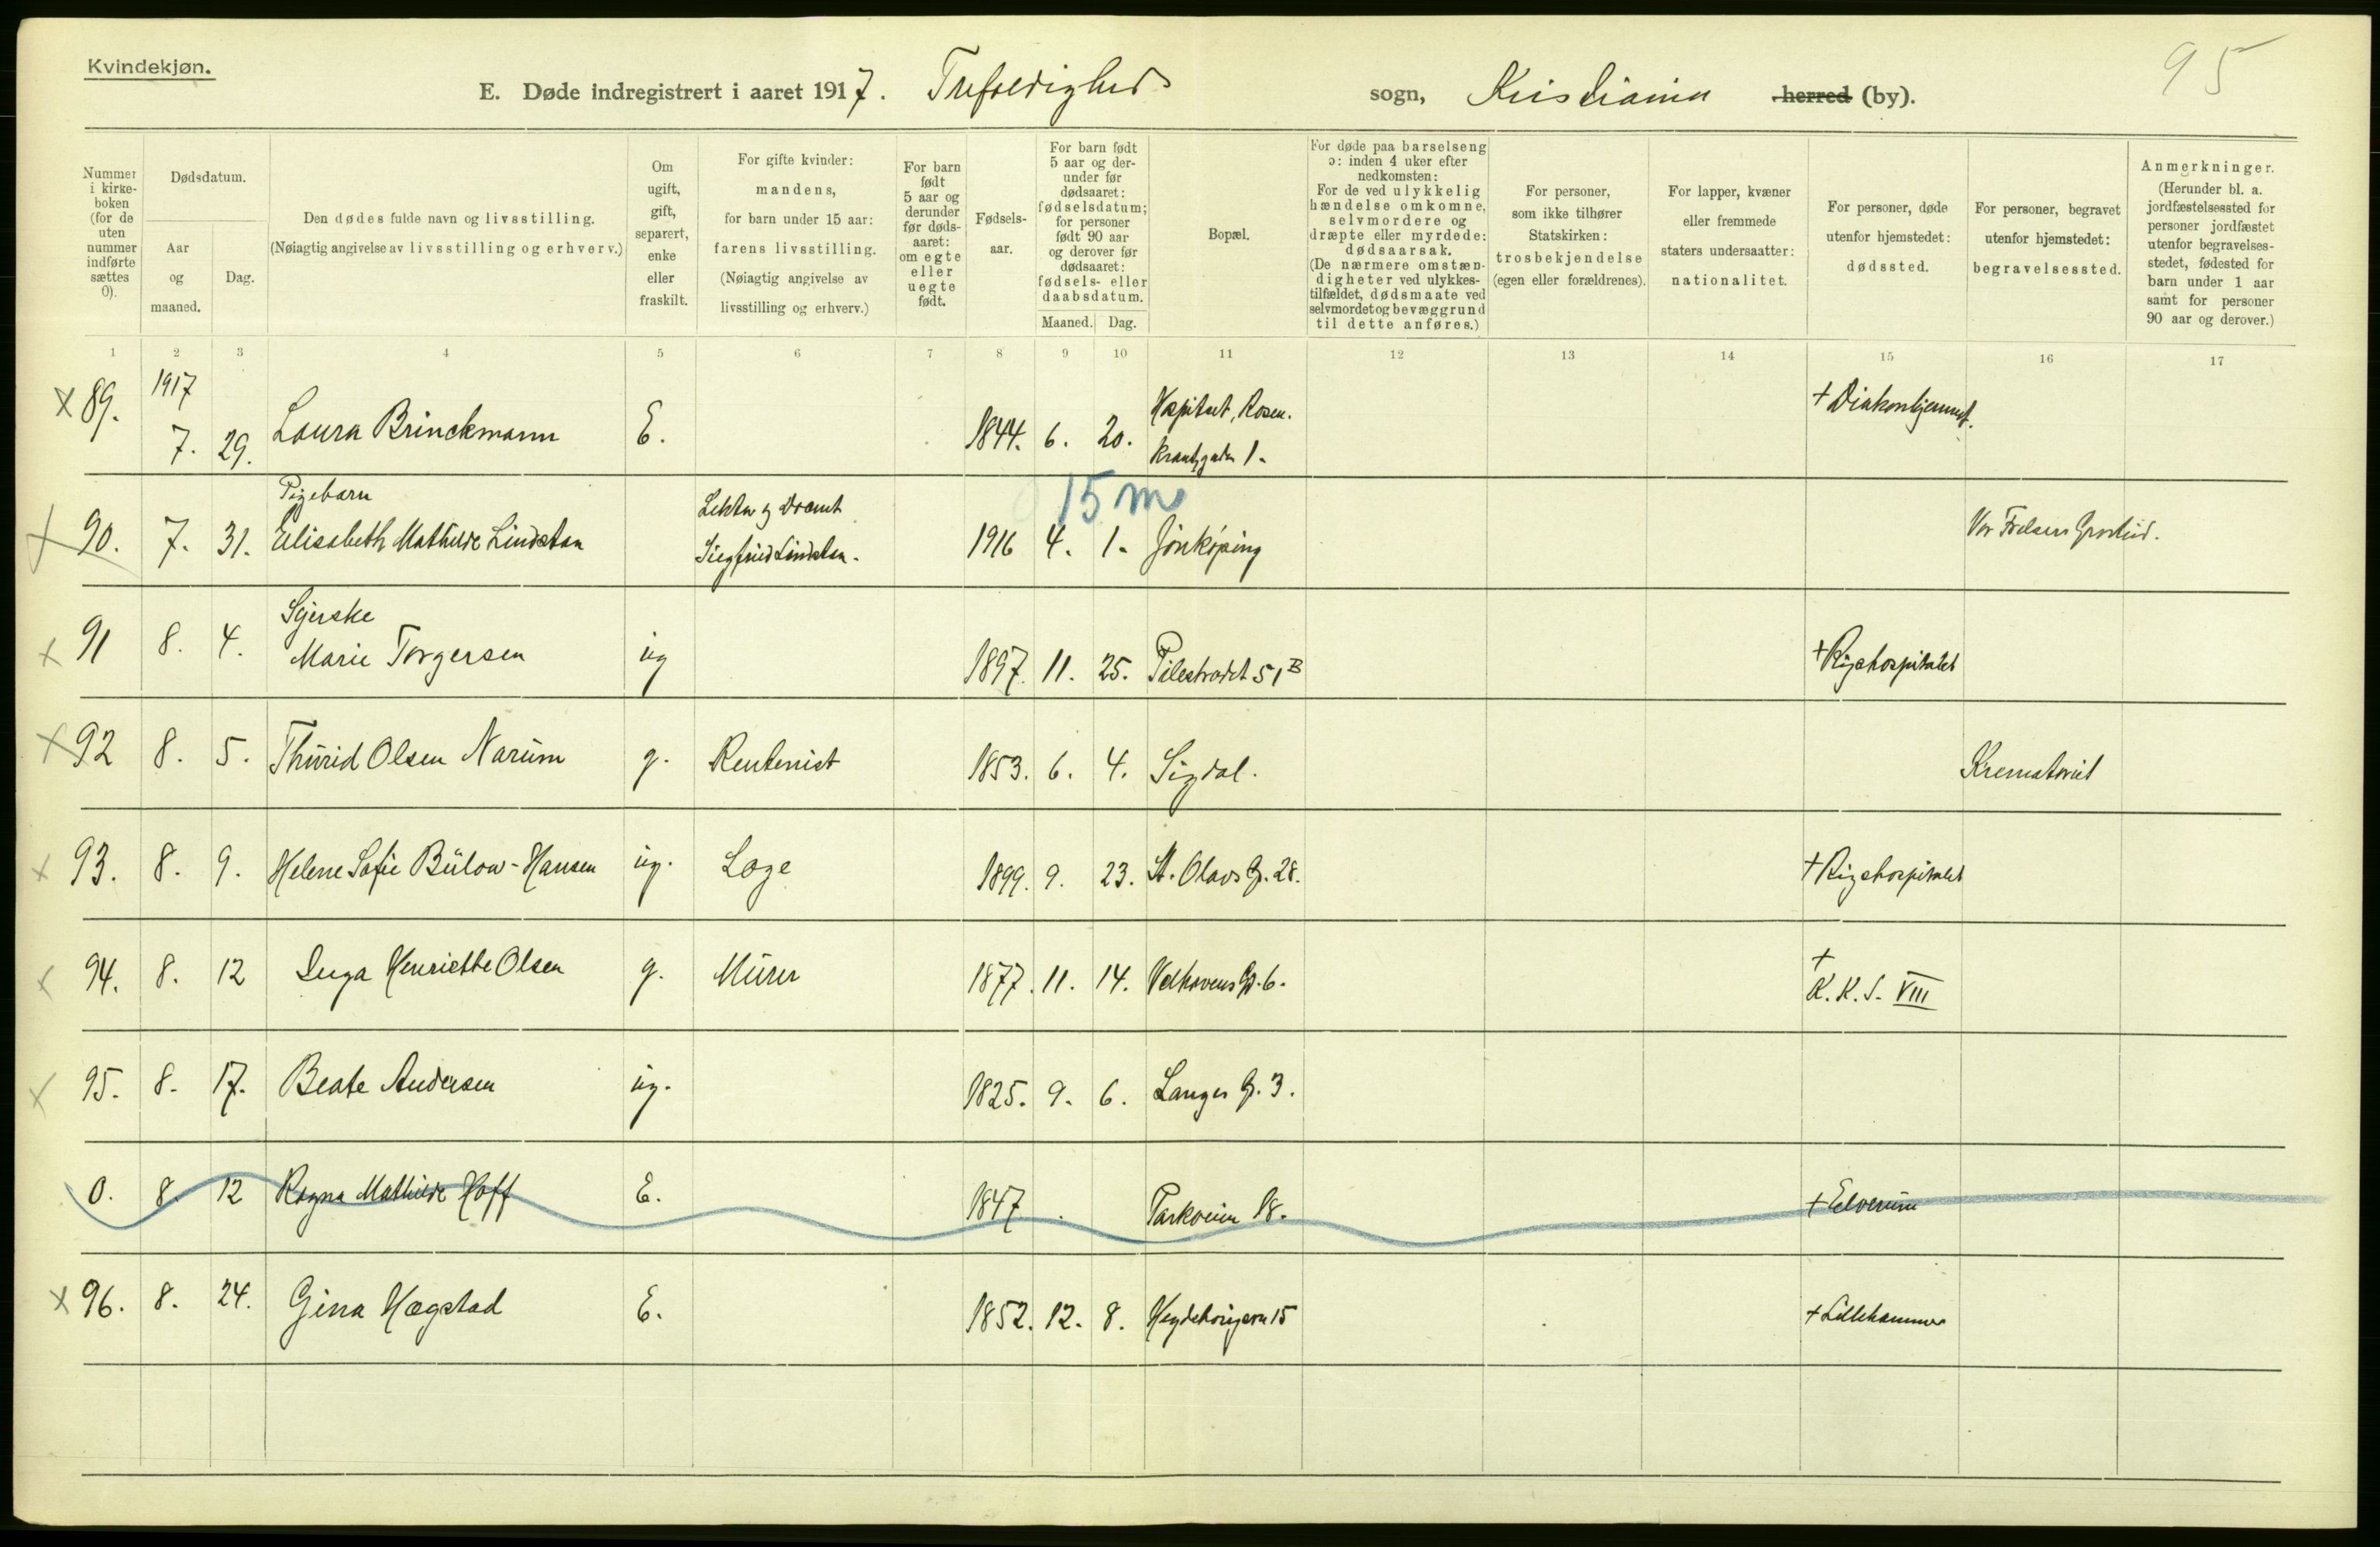 Kvindekjøn.
95
E. Døde indregistrert i aaret 1917. Trefoldigheds sogn, Kristiania herred (by).
Nummer i kirkeboken (for de uten nummer indførte sættes 0).
Dødsdatum.
Aar og maaned.
Dag.
Den dødes fulde navn og livsstilling.
(Nøiagtig angivelse av livsstilling og erhverv.)
Om ugift, gift, separert, enke eller fraskilt.
For gifte kvinder: mandens, for barn under 15 aar: farens livsstilling.
(Nøiagtig angivelse av livsstilling og erhverv.)
For barn født 5 aar og derunder før dødsaaret: om egte eller uegte født.
Fødselsaar.
For barn født 5 aar og derunder før dødsaaret: fødselsdatum; for personer født 90 aar og derover før dødsaaret: fødsels- eller daabsdatum.
Maaned. Dag.
Bopæl.
For døde paa barselseng ɔ: inden 4 uker efter nedkomsten: For de ved ulykkelig hændelse omkomne, selvmordere og dræpte eller myrdede: dødsaarsak.
(De nærmere omstændigheter ved ulykkestilfældet, dødsmaate ved selvmordet og bevæggrund til dette anføres.)
For personer, som ikke tilhører Statskirken: trosbekjendelse (egen eller forældrenes).
For lapper, kvæner eller fremmede staters undersaatter: nationalitet.
For personer, døde utenfor hjemstedet: dødssted.
For personer, begravet utenfor hjemstedet: begravelsessted.
Anmerkninger.
(Herunder bl. a. jordfæstelsessted for personer jordfæstet utenfor begravelsesstedet, fødested for barn under 1 aar samt for personer 90 aar og derover.)
1 2 3 4 5 6 7 8 9 10 11 12 13 14 15 16 17
1917
x 89. 7. 29. Laura Brinckmann E. 1844. 6. 20. Hospitset, Rosenkrantzgaten 1. + Diakonhjemmet.
15 m
Pigebarn
x 90. 7. 31. Elisabeth Mathilde Lindstan Lektor Siegfried Lindstan. 1916 4. 1. Jönköping Vor Frelsers Gravlund.
Syerske
x 91 8. 4. Marie Torgersen ug 1897. 11. 25. Pilestrædet 51 B + Rigshospitalet
x 92 8. 5. Thurid Olsen Narum g. Rentenist 1853. 6. 4. Sigdal. Krematoriet
x 93. 8. 9. Helene Sofie Bülow-Hansen ug. Læge 1899. 9. 23. St. Olavs G. 28. + Rigshospitalet
x 94. 8. 12 Inga Henriette Olsen g. Murer 1877. 11. 14. Welhavens G. 6. + K. K. S. VIII
x 95. 8. 17. Beate Andersen ug. 1825. 9. 6. Langes G. 3.
0. 8. 12 Ragna Mathilde Hoff E. 1847 Parkveien 18. + Elverum
x 96. 8. 24. Gina Hægstad E. 1852. 12. 8. Hegdehaugsvn 15 + Lillehammer